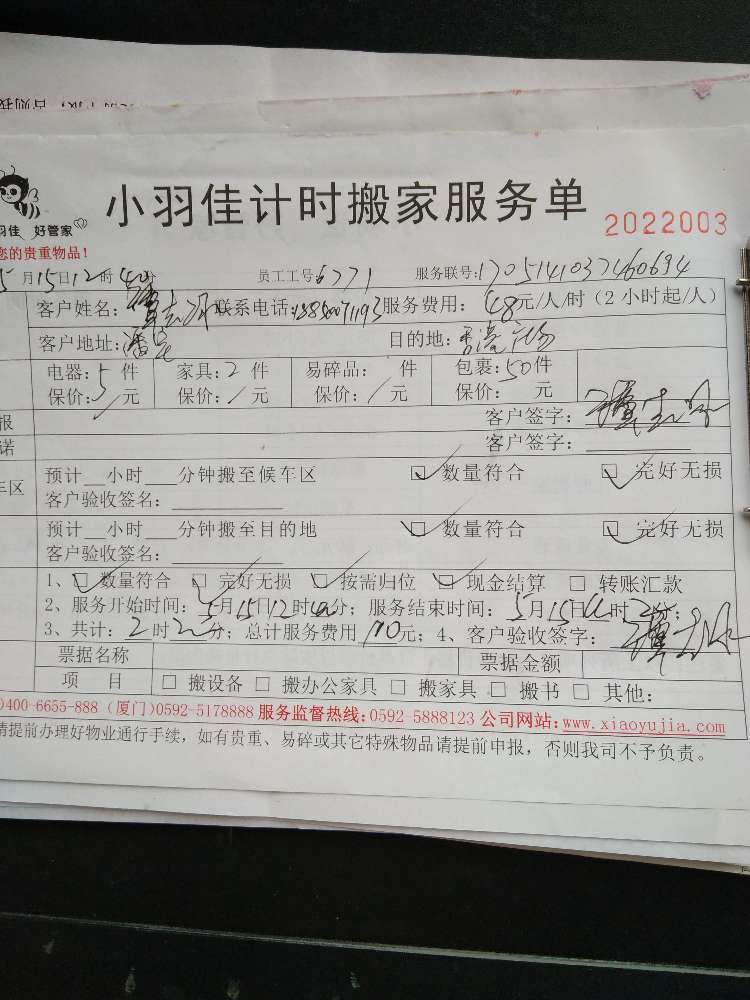 小羽佳计时搬家服务单
2022003
羽佳 好管家
您的贵重物品!
5月15日12时40分 员工工号6771 服务联号:1705141037460694
客户姓名: 联系电话: 服务费用:48元/人/时(2小时起/人)
客户地址: 目的地:
电器:5件 家具:2件 易碎品: 件 包裹:50件
保价:/元 保价:/元 保价:/元 保价: 元
报 客户签字:
诺 客户签字:
车区 预计__小时___分钟搬至候车区 ☑数量符合 ☑完好无损
客户验收签名:
预计__小时___分钟搬至目的地 ☑数量符合 ☑完好无损
客户验收签名:
1、☑数量符合 ☑完好无损 ☑按需归位 ☑现金结算 □转账汇款
2、服务开始时间:5月15日12时40分;服务结束时间:5月15日 时 分;
3、共计:2时2 分;总计服务费用 元;4、客户验收签字:
票据名称 票据金额
项 目 □搬设备 □搬办公家具 □搬家具 □搬书 □其他:
)400-6655-888 (厦门)0592-5178888 服务监督热线:0592-5888123 公司网站:www.xiaoyujia.com
请提前办理好物业通行手续,如有贵重、易碎或其它特殊物品请提前申报,否则我司不予负责。